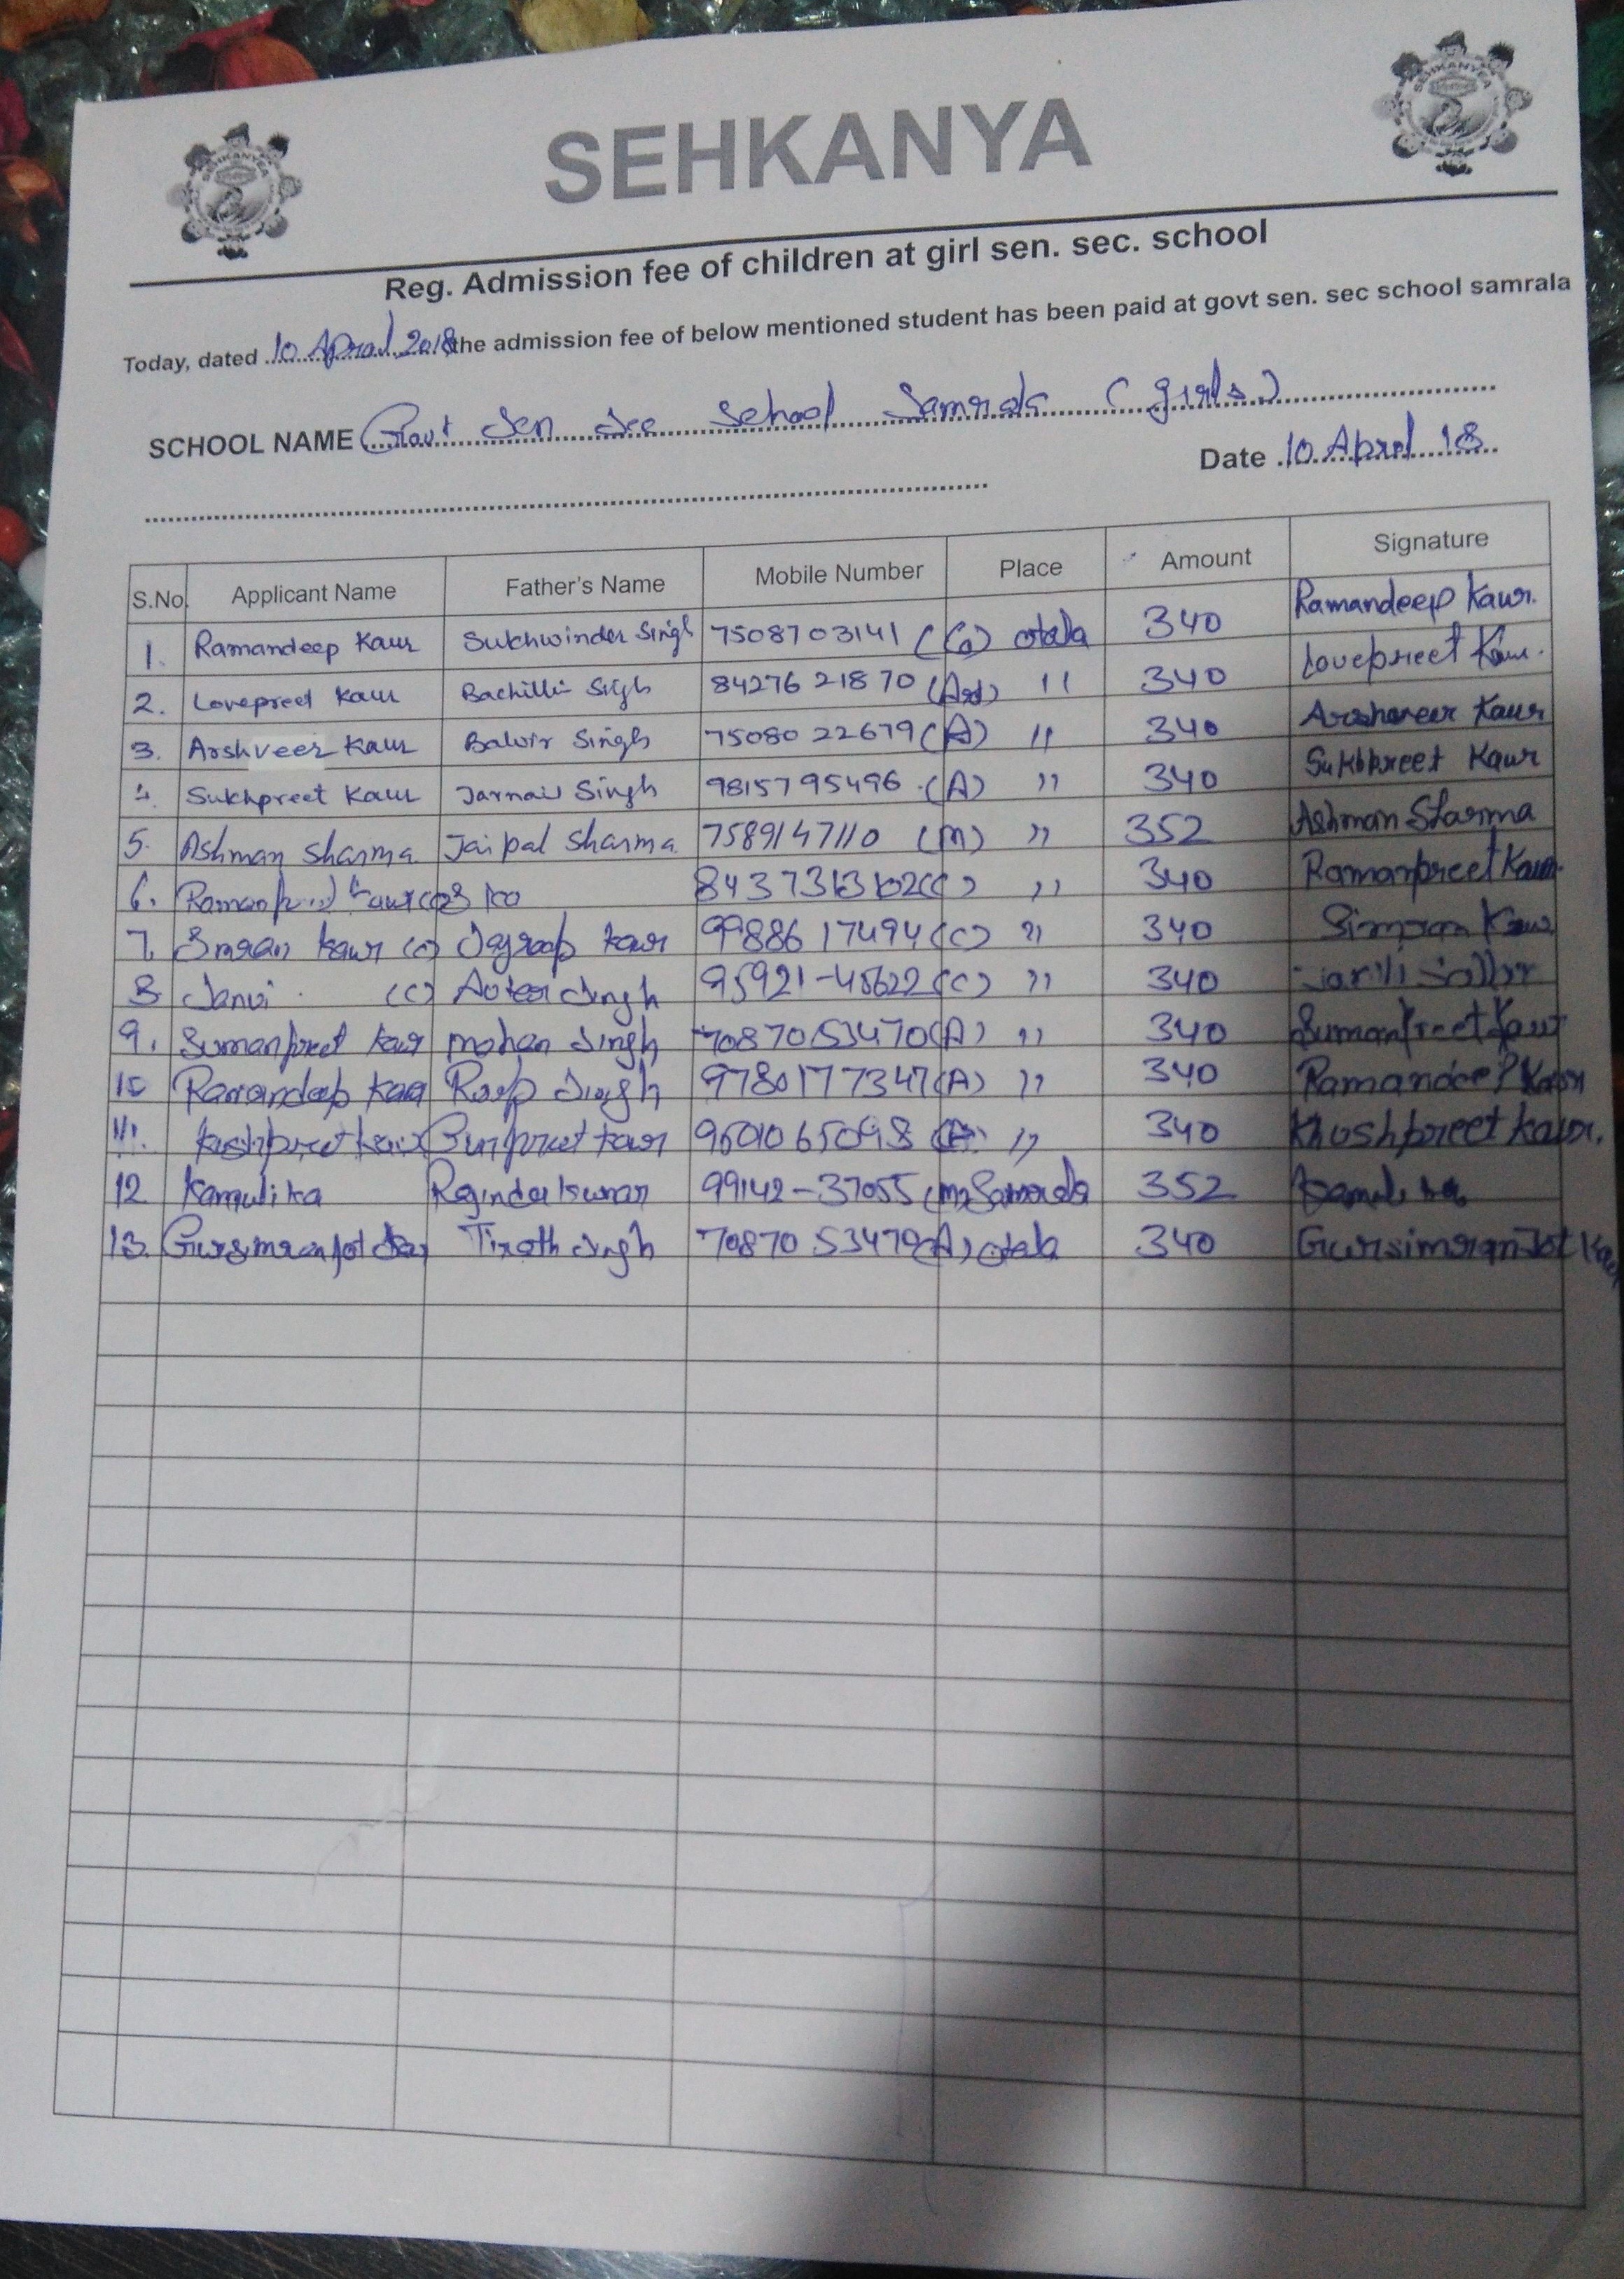 SEHKANYA
Reg. Admission fee of children at girl sen. sec. school
Today, dated 10 April 2018 the admission fee of below mentioned student has been paid at govt sen. sec school samrala
SCHOOL NAME Govt Sen Sec School Samrala (girls)
Date 10 April 18
S.No. Applicant Name Father's Name Mobile Number Place Amount Signature
1. Ramandeep Kaur Sukhwinder Singh 7508703141 (Co) otala 340 Ramandeep Kaur.
2. Lovepreet Kaur Singh 84276 21870 (Art) 11 340 Lovepreet Kaur.
3. Arshveer Kaur Balvir Singh 75080 22679 (A) 11 340 Arshveer Kaur
4. Sukhpreet Kaur Jarnail Singh 9815795496 (A) 11 340 Sukhpreet Kaur
5. Ashman Sharma Jaipal Sharma 7589147110 (M) 11 352 Ashman Sharma
6. (C) 11 340 Ramanpreet Kaur.
7. Simran Kaur (C) Jagroop Kaur 99886 17494 (C) 11 340 Simran Kaur
8 Janvi (C) Singh 95921-45622 (C) 11 340
9. Sumanpreet Kaur Mohan Singh 70870 53470 (A) 11 340 Sumanpreet Kaur
10 Ramandeep Kaur Roop Singh 9780177347 (A) 11 340 Ramandeep Kaur
11. Kushpreet Kaur Gurpreet Kaur (A) 11 340 Khushpreet Kaur.
12 Kamulika Rajinder Kumar 99142-37055 (M) Samrala 352
13. Gursimranjot Kaur Tirath Singh 70870 53479 (A) otala 340 Gursimranjot Kaur